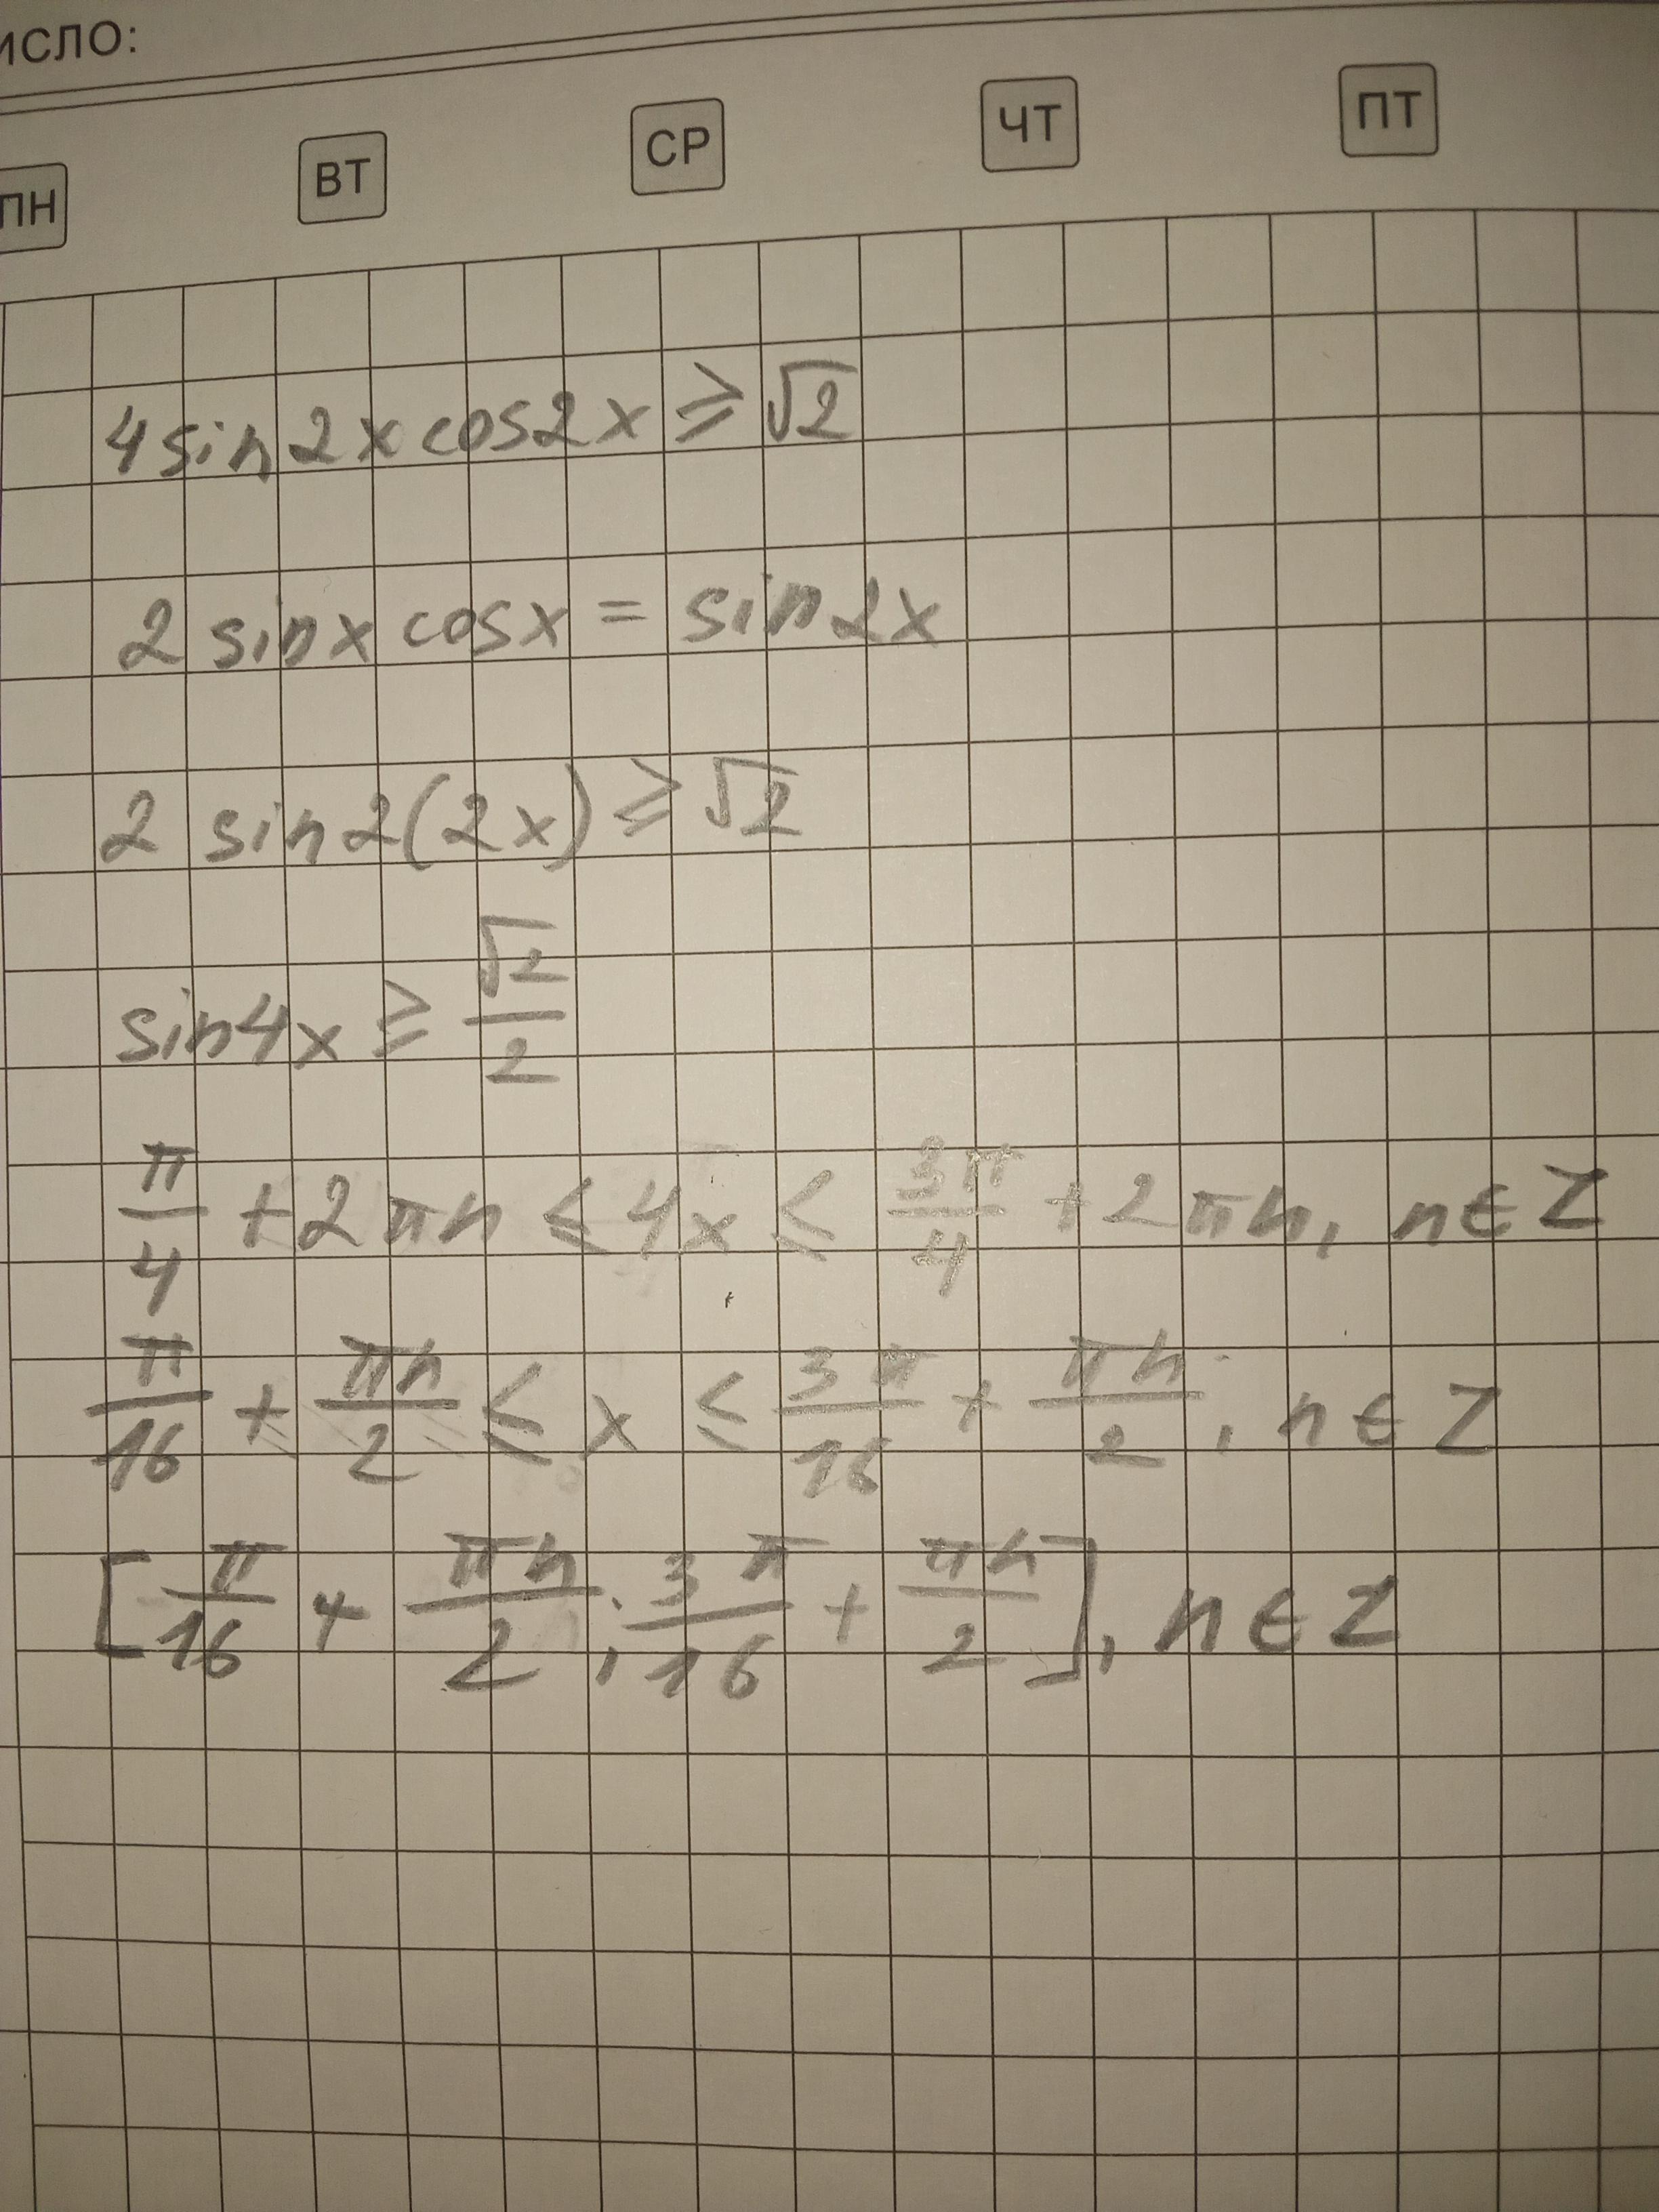 ИСЛО:
ПН ВТ СР ЧТ ПТ
4 sin 2x cos 2x ⩾ √2
2 sin x cos x = sin 2x
2 sin 2(2x) ⩾ √2
sin 4x ⩾ √2/2
π/4 + 2πn ≤ 4x ≤ 3π/4 + 2πn, n ∈ Z
π/16 + πn/2 ≤ x ≤ 3π/16 + πn/2, n ∈ Z
[π/16 + πn/2; 3π/16 + πn/2], n ∈ Z